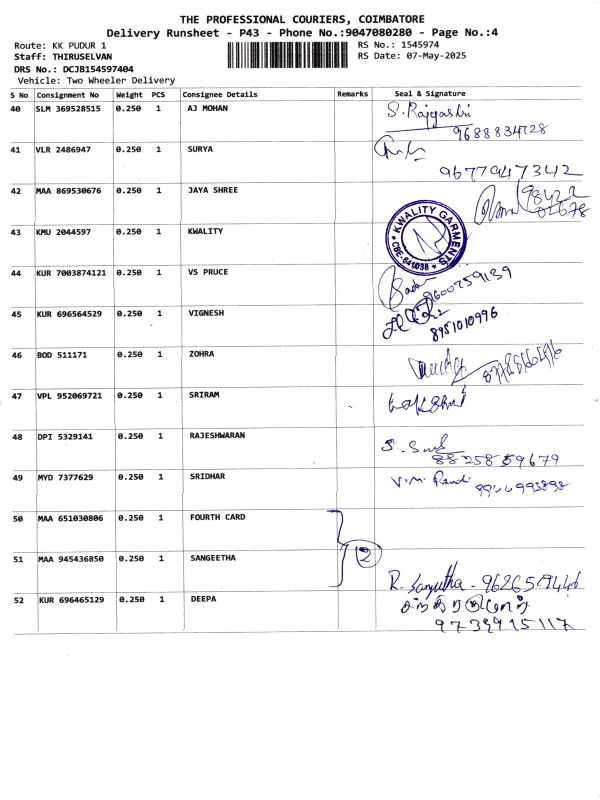 THE PROFESSIONAL COURIERS, COIMBATORE
Delivery Runsheet - P43 - Phone No.:9047080280 - Page No.:4
Route: KK PUDUR 1
Staff: THIRUSELVAN
DRS No.: DCJB154597404
Vehicle: Two Wheeler Delivery
RS No.: 1545974
RS Date: 07-May-2025
S No Consignment No Weight PCS Consignee Details Remarks Seal & Signature
40 SLM 369528515 0.250 1 AJ MOHAN S. Rajyashri
9688834728
41 VLR 2486947 0.250 1 SURYA
9677947342
42 MAA 869530676 0.250 1 JAYA SHREE
43 KMU 2044597 0.250 1 KWALITY KWALITY GARMENTS * CBE-641038 *
44 KUR 7003874121 0.250 1 VS PRUCE
9600259139
45 KUR 696564529 0.250 1 VIGNESH
8951010996
46 BOD 511171 0.250 1 ZOHRA
47 VPL 952069721 0.250 1 SRIRAM
48 DPI 5329141 0.250 1 RAJESHWARAN
8825859679
49 MYD 7377629 0.250 1 SRIDHAR
50 MAA 651030806 0.250 1 FOURTH CARD
2
51 MAA 945436850 0.250 1 SANGEETHA
52 KUR 696465129 0.250 1 DEEPA